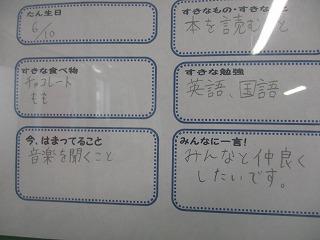 たん生日
6/10
すきなもの・すきなこと
本を読むこと
すきな食べ物
チョコレート
もも
すきな勉強
英語、国語
今、はまってること
音楽を聞くこと
みんなに一言!
みんなと仲良く
したいです。